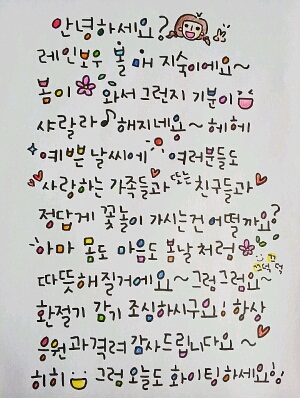 안녕하세요?
레인보우 볼매 지숙이에요~
봄이 와서 그런지 기분이
샤랄라♪해지네요~ 헤헤
예쁜 날씨에 여러분들도
사랑하는 가족들과 또는 친구들과
정답게 꽃놀이 가시는건 어떨까요?
아마 몸도 마음도 봄날처럼
따뜻해질거에요~ 그럼그럼요~ 끄덕끄덕
환절기 감기 조심하시구요! 항상
응원과 격려 감사드립니다요~
히히 그럼 오늘도 화이팅하세요!